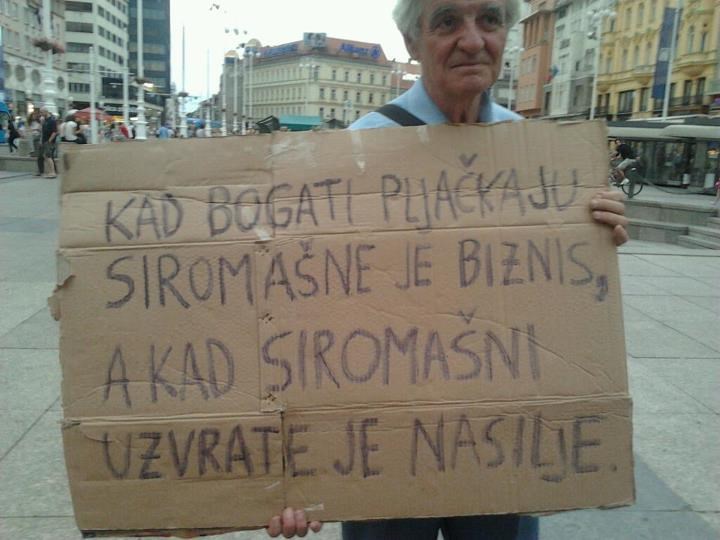 Allianz
KAD BOGATI PLJAČKAJU
SIROMAŠNE JE BIZNIS,
A KAD SIROMAŠNI
UZVRATE JE NASILJE.